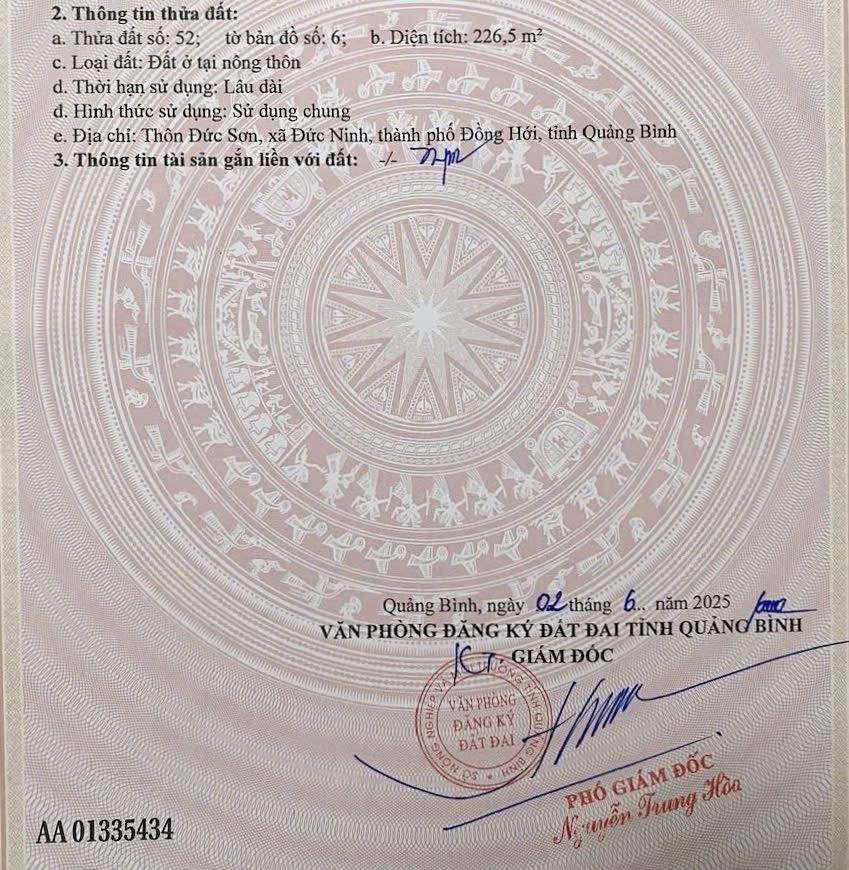 2. Thông tin thửa đất:
a. Thửa đất số: 52; tờ bản đồ số: 6; b. Diện tích: 226,5 m²
c. Loại đất: Đất ở tại nông thôn
d. Thời hạn sử dụng: Lâu dài
đ. Hình thức sử dụng: Sử dụng chung
e. Địa chỉ: Thôn Đức Sơn, xã Đức Ninh, thành phố Đồng Hới, tỉnh Quảng Bình
3. Thông tin tài sản gắn liền với đất: -/-
Quảng Bình, ngày 02 tháng 6.. năm 2025
VĂN PHÒNG ĐĂNG KÝ ĐẤT ĐAI TỈNH QUẢNG BÌNH
KT. GIÁM ĐỐC
SỞ NÔNG NGHIỆP VÀ MÔI TRƯỜNG TỈNH QUẢNG BÌNH
VĂN PHÒNG
ĐĂNG KÝ
ĐẤT ĐAI
PHÓ GIÁM ĐỐC
Nguyễn Trung Hòa
AA 01335434